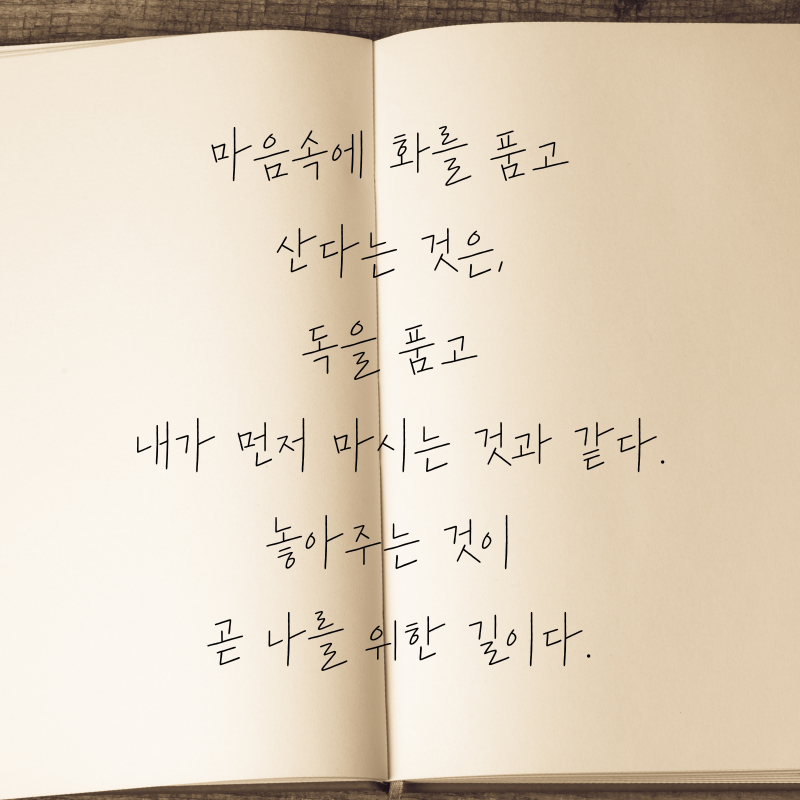 마음속에 화를 품고
산다는 것은,
독을 품고
내가 먼저 마시는 것과 같다.
놓아주는 것이
곧 나를 위한 길이다.